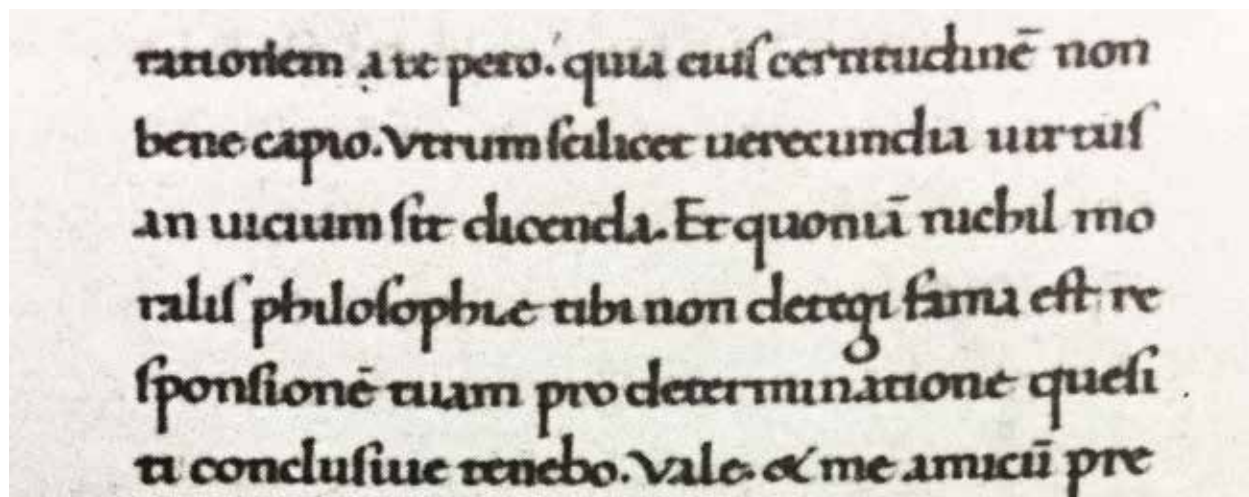 rationem a te peto. quia eiuſ certitudinē non
bene capio. Vtrum ſcilicet uerecundia uirtuſ
an uicium ſit dicenda. Et quoniā nichil mo
raliſ philoſophie tibi non detegi fama eſt re
ſponſionē tuam pro determinatione queſi
ti concluſiue tenebo. Vale. & me amicū pre